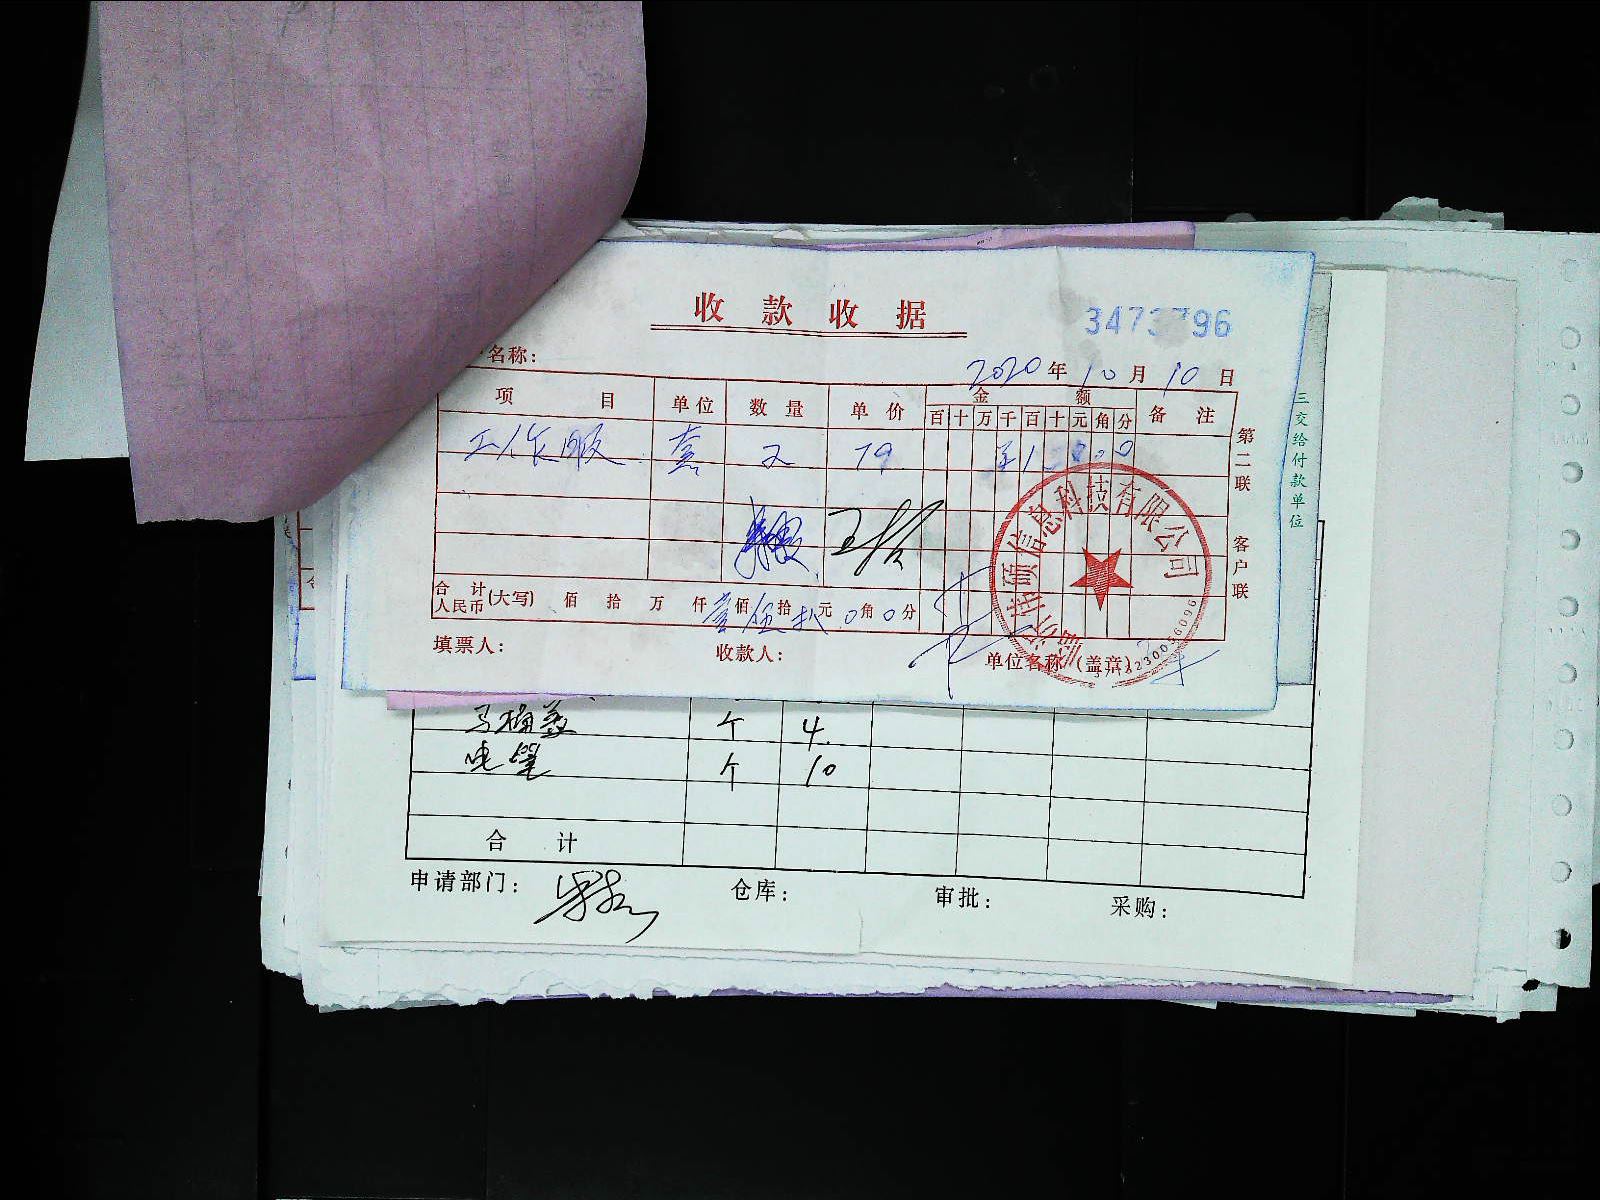 收款收据
3473796
名称：
2020年10月10日
项目 单位 数量 单价 金额 备注
百 十 万 千 百 十 元 角 分
工作服 套 2 79
合计人民币(大写) 佰 拾 万 仟 壹佰 伍拾 捌元 0角 0分
填票人： 收款人： 单位名称(盖章)
第二联 客户联
临沂伟硕信息科技有限公司
三交给付款单位
马桶盖 个 4
电笔 个 10
合计
申请部门： 仓库： 审批： 采购：